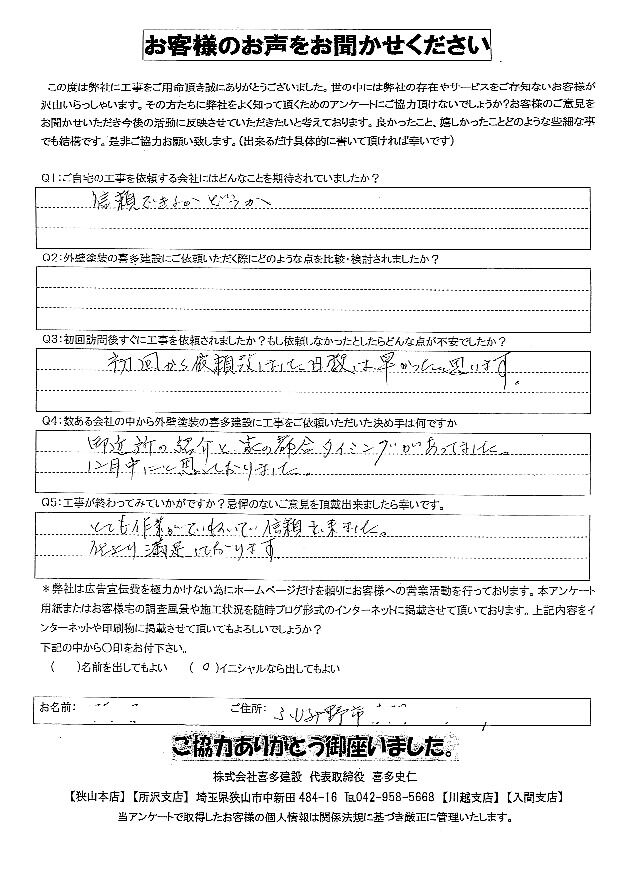 お客様のお声をお聞かせください
この度は弊社に工事をご用命頂き誠にありがとうございました。世の中には弊社の存在やサービスをご存知ないお客様が
沢山いらっしゃいます。その方たちに弊社をよく知って頂くためのアンケートにご協力頂けないでしょうか?お客様のご意見を
お聞かせいただき今後の活動に反映させていただきたいと考えております。良かったこと、嬉しかったことどのような些細な事
でも結構です。是非ご協力お願い致します。(出来るだけ具体的に書いて頂ければ幸いです)
Q1:ご自宅の工事を依頼する会社にはどんなことを期待されていましたか?
信頼できるかどうか
Q2:外壁塗装の喜多建設にご依頼いただく際にどのような点を比較・検討されましたか?
Q3:初回訪問後すぐに工事を依頼されましたか?もし依頼しなかったとしたらどんな点が不安でしたか?
初回から依頼致しました。日数は早かったと思います。
Q4:数ある会社の中から外壁塗装の喜多建設に工事をご依頼いただいた決め手は何ですか
御近所の紹介と家の都合タイミングがあってました。
12月中にと思っておりました。
Q5:工事が終わってみていかがですか?忌憚のないご意見を頂戴出来ましたら幸いです。
とても作業がていねいで信頼出来ました。
仕上り満足しております
*弊社は広告宣伝費を極力かけない為にホームページだけを頼りにお客様への営業活動を行っております。本アンケート
用紙またはお客様宅の調査風景や施工状況を随時ブログ形式のインターネットに掲載させて頂いております。上記内容をイ
ンターネットや印刷物に掲載させて頂いてもよろしいでしょうか?
下記の中から〇印をお付下さい。
( )名前を出してもよい (〇)イニシャルなら出してもよい
お名前: ご住所: ふじみ野市
ご協力ありがとう御座いました。
株式会社喜多建設 代表取締役 喜多史仁
【狭山本店】【所沢支店】 埼玉県狭山市中新田484-16 ℡042-958-5668 【川越支店】【入間支店】
当アンケートで取得したお客様の個人情報は関係法規に基づき厳正に管理いたします。